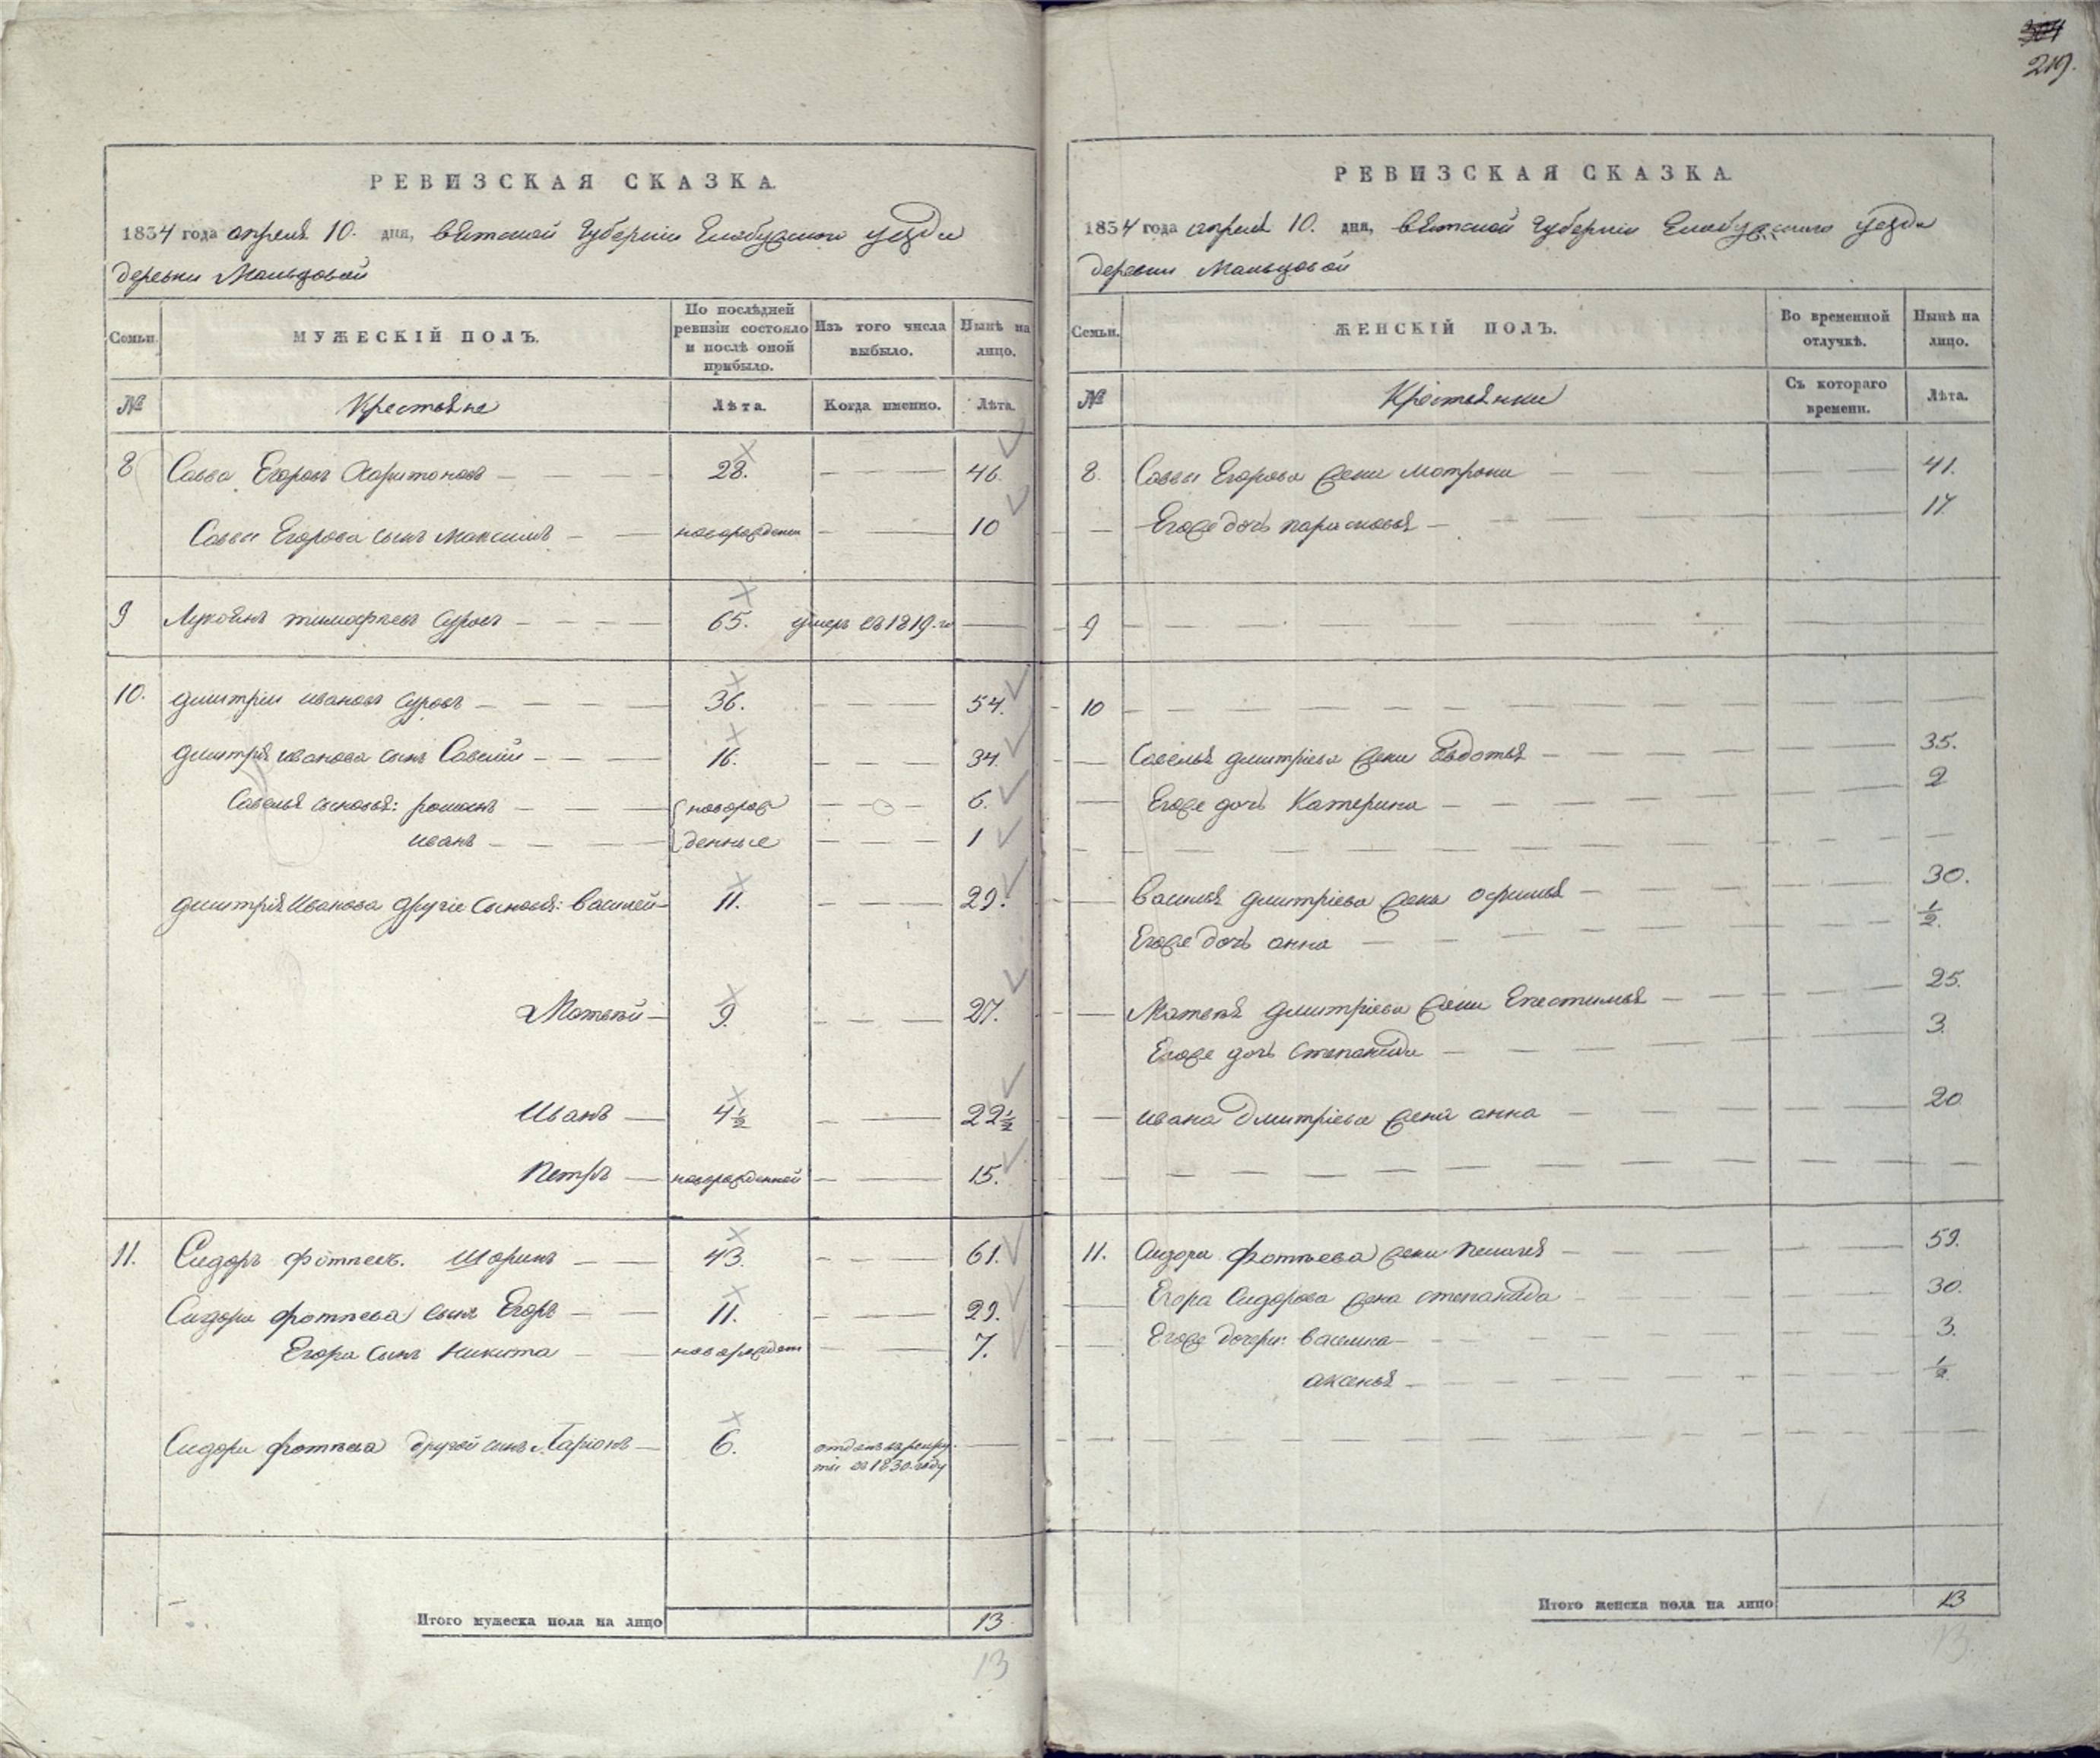 219.
РЕВИЗСКАЯ СКАЗКА.
1834 года апреля 10. дня, Вятской Губернiи Елабужского уезда
деревни Мальцовой
Семьи.
МУЖЕСКІЙ ПОЛЪ.
По послѣдней ревизіи состояло и послѣ оной прибыло.
Изъ того числа выбыло.
Нынѣ на лицо.
№
Крестьяне
Лѣта.
Когда именно.
Лѣта.
8 Савва Егоровъ Харитоновъ 28. 46.
Саввы Егорова сынъ Максимъ новорожден 10
9 Лукоянъ тимофѣевъ Суровъ 65. умеръ въ 1819.го
10. дмитрiи ивановъ Суровъ 36. 54.
дмитрiя иванова сынъ Савелiй 16. 34.
Савелья сыновья: романъ новорож 6.
иванъ денные 1
дмитрiя Иванова другiе сыновья: василей 11. 29.
Матвѣй 9. 27.
Иванъ 4½ 22½
Петръ новорожденной 15.
11. Сидоръ фотѣевъ. Шоринъ 43. 61.
Сидора фотѣева сынъ Егоръ 11. 29.
Егора сынъ Никита новорожден 7.
Сидора фотѣева другой сынъ Ларiонъ 6. отданъ в рекру
ты в 1830. году
Итого мужеска пола на лицо 13
13
РЕВИЗСКАЯ СКАЗКА.
1834 года апреля 10. дня, Вятской Губернiи Елабужского уезда
деревни Мальцовой
Семьи.
ЖЕНСКІЙ ПОЛЪ.
Во временной отлучкѣ.
Нынѣ на лицо.
№
Крестьянки
Съ котораго времени.
Лѣта.
8. Саввы Егорова жена матрона 41.
Егоже дочь парасковья 17.
9
10
Савелья дмитрiева жена Евдотья 35.
Егоже дочь Катерина 2
Василья дмитрiева жена офимья 30.
Егоже дочь анна ½.
Матвѣя дмитрiева жена Епестимья 25.
Егоже дочь степанида 3.
ивана дмитрiева жена анна 20
11. Сидора фотѣева жена пелагея 59.
Егора Сидорова жена степанида 30.
Егоже дочери: василиса 3.
аксенья ½.
Итого женска пола на лицо 13
13.